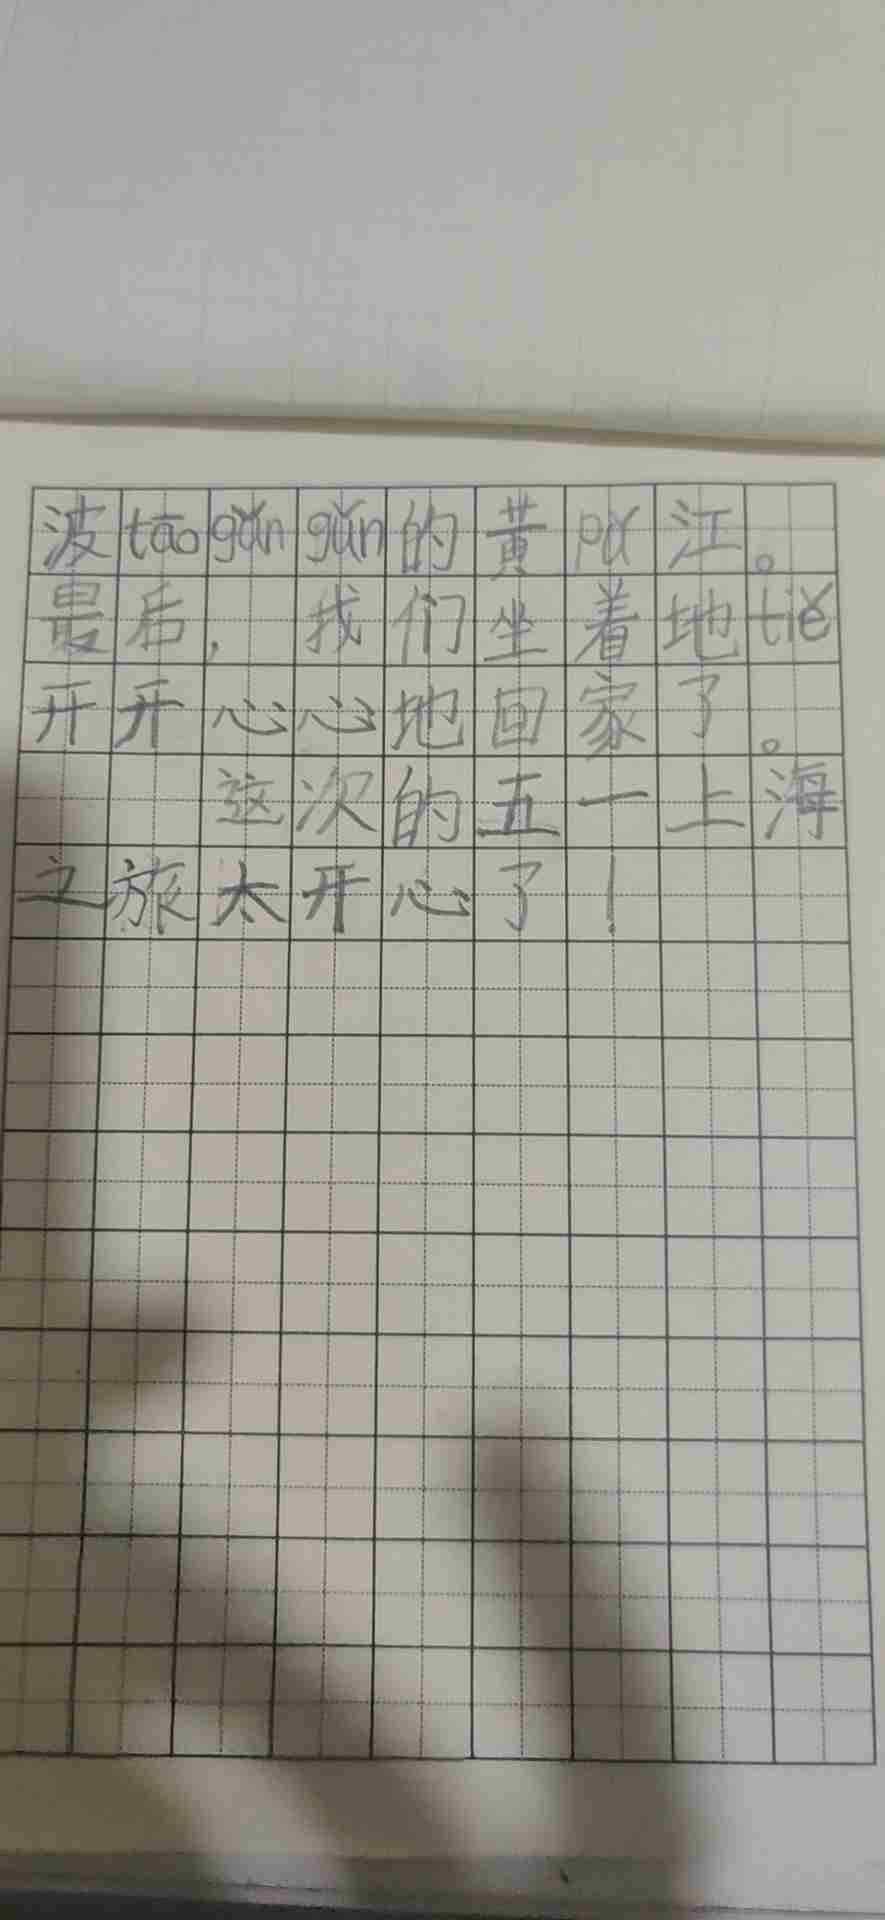 波tāogǔngǔn的黄pǔ江。
最后，我们坐着地tiě
开开心心地回家了。
这次的五一上海
之旅太开心了！